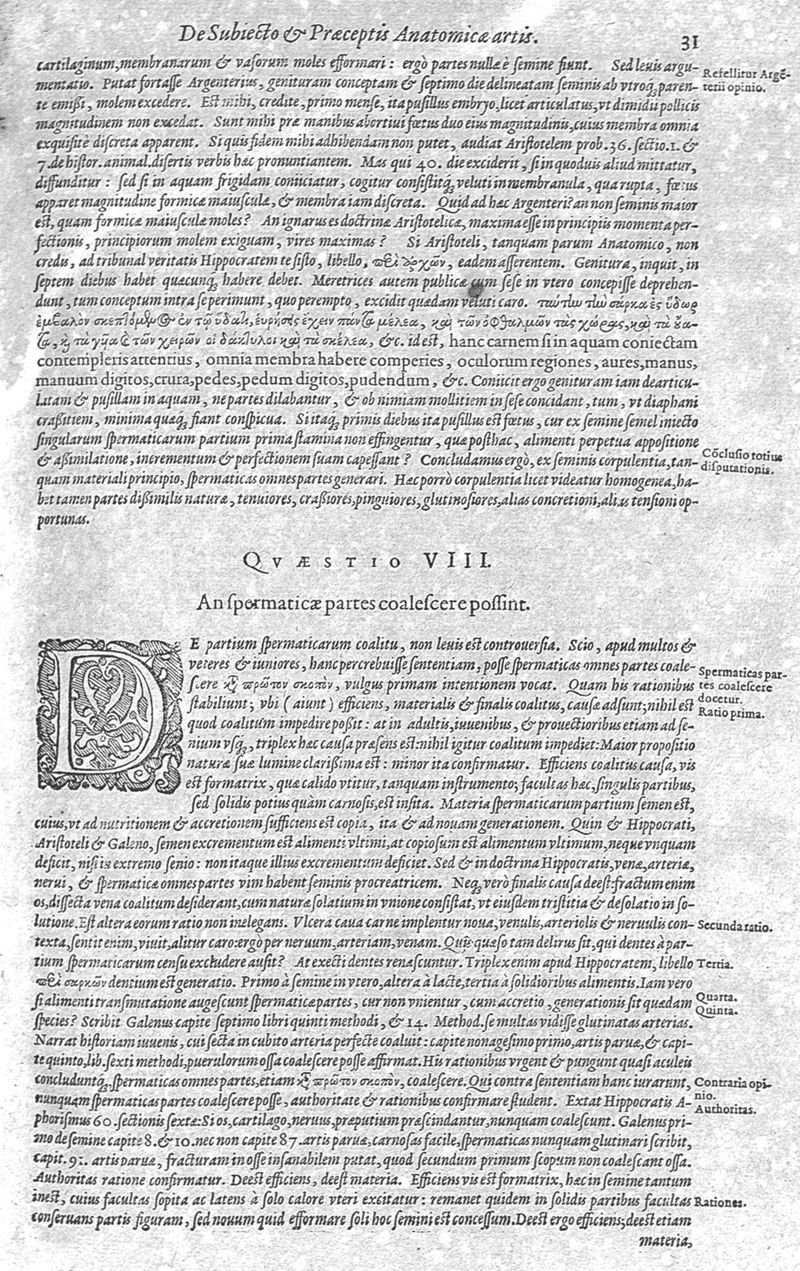 De Subiecto & Præceptis Anatomicæ artis.
31
cartilaginum, membranarum & vasorum moles efformari : ergò partes nullæ è semine fiunt. Sed leuis argu-
mentatio. Putat fortasse Argenterius, genituram conceptam & septimo die delineatam seminis ab vtroq; paren-
te emissi, molem excedere. Est mihi, credite, primo mense, ita pusillus embryo, licet articulatus, vt dimidij pollicis
magnitudinem non excedat. Sunt mihi præ manibus abortiui fœtus duo eius magnitudinis, cuius membra omnia
exquisitè discreta apparent. Si quis fidem mihi adhibendam non putet, audiat Aristotelem prob. 36. sectio. 1. &
7. de histor. animal. disertis verbis hæc pronuntiantem. Mas qui 40. die exciderit, si in quoduis aliud mittatur,
diffunditur : sed si in aquam frigidam coniiciatur, cogitur consistitq; veluti in membranula, qua rupta, fœtus
apparet magnitudine formicæ maiusculæ, & membra iam discreta. Quid ad hæc Argenteri? an non seminis maior
est, quam formicæ maiusculæ moles ? An ignarus es doctrinæ Aristotelicæ, maxima esse in principiis momenta per-
fectionis, principiorum molem exiguam, vires maximas ? Si Aristoteli, tanquam parum Anatomico, non
credis, ad tribunal veritatis Hippocratem te sisto, libello, eadem asserentem. Genitura, inquit, in
septem diebus habet quæcunq; habere debet. Meretrices autem publicæ cum sese in vtero concepisse deprehen-
dunt, tum conceptum intra se perimunt, quo perempto, excidit quædam veluti caro. ταύτην τὴν σάρκα ἐς ὕδωρ
ἐμβαλὸν ἐν τῷ ὕδατι, εὑρήσεις ἔχειν πάντα μέλεα, καὶ τῶν ὀφθαλμῶν τὰς χώρας, καὶ τὰ οὔα-
τα, καὶ τὰ γυῖα, καὶ τῶν χειρῶν οἱ δάκτυλοι καὶ τὰ σκέλεα, &c. id est, hanc carnem si in aquam coniectam
contempleris attentius, omnia membra habere comperies, oculorum regiones, aures, manus,
manuum digitos, crura, pedes, pedum digitos, pudendum, &c. Coniicit ergo genituram iam dearticu-
latam & pusillam in aquam, ne partes dilabantur, & ob nimiam mollitiem in sese concidant, tum, vt diaphani
crassitiem, minima quæq; fiant conspicua. Si itaq; primis diebus ita pusillus est fœtus, cur ex semine semel iniecto
singularum spermaticarum partium prima stamina non effingentur, quæ posthac, alimenti perpetua appositione
& assimilatione, incrementum & perfectionem suam capessant ? Concludamus ergò, ex seminis corpulentia, tan-
quam materiali principio, spermaticas omnes partes generari. Hæc porrò corpulentia licet videatur homogenea, ha-
bet tamen partes dissimilis naturæ, tenuiores, crassiores, pinguiores, glutinosiores, alias concretioni, alias tensioni op-
portunas.
Refellitur Argē-
terii opinio.
Cōclusio totius
disputationis.
QVÆSTIO VIII.
An spermaticæ partes coalescere possint.
DE partium spermaticarum coalitu, non leuis est controuersia. Scio, apud multos &
veteres & iuniores, hanc percrebuisse sententiam, posse spermaticas omnes partes coale-
scere κατὰ πρῶτον σκοπὸν, vulgus primam intentionem vocat. Quam his rationibus
stabiliunt; vbi ( aiunt ) efficiens, materialis & finalis coalitus, causæ adsunt; nihil est
quod coalitum impedire possit : at in adultis, iuuenibus, & prouectioribus etiam ad se-
nium vsq; triplex hæc causa præsens est: nihil igitur coalitum impediet: Maior propositio
naturæ suæ lumine clarissima est : minor ita confirmatur. Efficiens coalitus causa, vis
est formatrix, quæ calido vtitur, tanquam instrumento; facultas hæc, singulis partibus,
sed solidis potius quàm carnosis, est insita. Materia spermaticarum partium semen est,
cuius, vt ad nutritionem & accretionem sufficiens est copia, ita & ad nouam generationem. Quin & Hippocrati,
Aristoteli & Galeno, semen excrementum est alimenti vltimi, at copiosum est alimentum vltimum, neque vnquam
deficit, nisi in extremo senio : non itaque illius excrementum deficiet. Sed & in doctrina Hippocratis, venæ, arteriæ,
nerui, & spermaticæ omnes partes vim habent seminis procreatricem. Neq; verò finalis causa deest: fractum enim
os, dissecta vena coalitum desiderant, cum naturæ solatium in vnione consistat, vt eiusdem tristitia & desolatio in so-
lutione. Est altera eorum ratio non inelegans. Vlcera caua carne implentur noua, venulis, arteriolis & neruulis con-
texta, sentit enim, viuit, alitur caro: ergò per neruum, arteriam, venam. Quis quæso tam delirus sit, qui dentes à par-
tium spermaticarum censu excludere ausit ? At execti dentes renascuntur. Triplex enim apud Hippocratem, libello
περὶ σαρκῶν dentium est generatio. Primo à semine in vtero, altera à lacte, tertia à solidioribus alimentis. Iam vero
si alimenti transmutatione augescunt spermaticæ partes, cur non vnientur, cum accretio, generationis sit quædam
species ? Scribit Galenus capite septimo libri quinti methodi, & 14. Method. se multas vidisse glutinatas arterias.
Narrat historiam iuuenis, cui secta in cubito arteria perfecte coaluit : capite nonagesimo primo, artis paruæ, & capi-
te quinto, lib. sexti methodi, puerulorum ossa coalescere posse affirmat. His rationibus vrgent & pungunt quasi aculeis
concluduntq; spermaticas omnes partes, etiam κατὰ πρῶτον σκοπὸν, coalescere. Qui contra sententiam hanc iurarunt,
nunquam spermaticas partes coalescere posse, authoritate & rationibus confirmare student. Extat Hippocratis A-
phorismus 60. sectionis sextæ: Si os, cartilago, neruus, præputium præscindantur, nunquam coalescunt. Galenus pri-
mo de semine capite 8. & 10. nec non capite 87. artis paruæ, carnosas facile, spermaticas nunquam glutinari scribit,
capit. 91. artis paruæ, fracturam in osse insanabilem putat, quod secundum primum scopum non coalescant ossa.
Authoritas ratione confirmatur. Deest efficiens, deest materia. Efficiens vis est formatrix, hæc in semine tantum
inest, cuius facultas sopita ac latens à solo calore vteri excitatur : remanet quidem in solidis partibus facultas
conseruans partis figuram, sed nouum quid efformare soli hoc semini est concessum. Deest ergo efficiens; deest etiam
materia,
Spermaticas par-
tes coalescere
docetur.
Ratio prima.
Secunda ratio.
Tertia.
Quarta.
Quinta.
Contraria opi-
nio.
Authoritas.
Rationes.